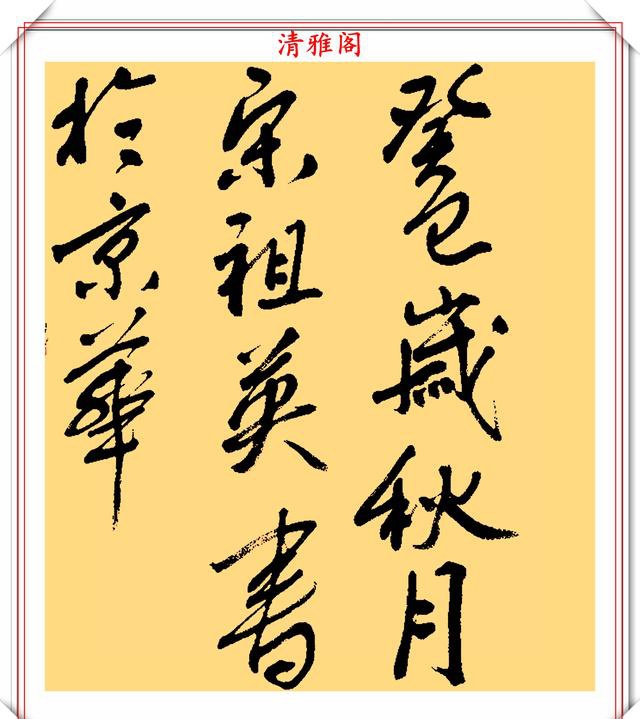 清雅阁
癸巳歲秋月
宋祖英書
於京華